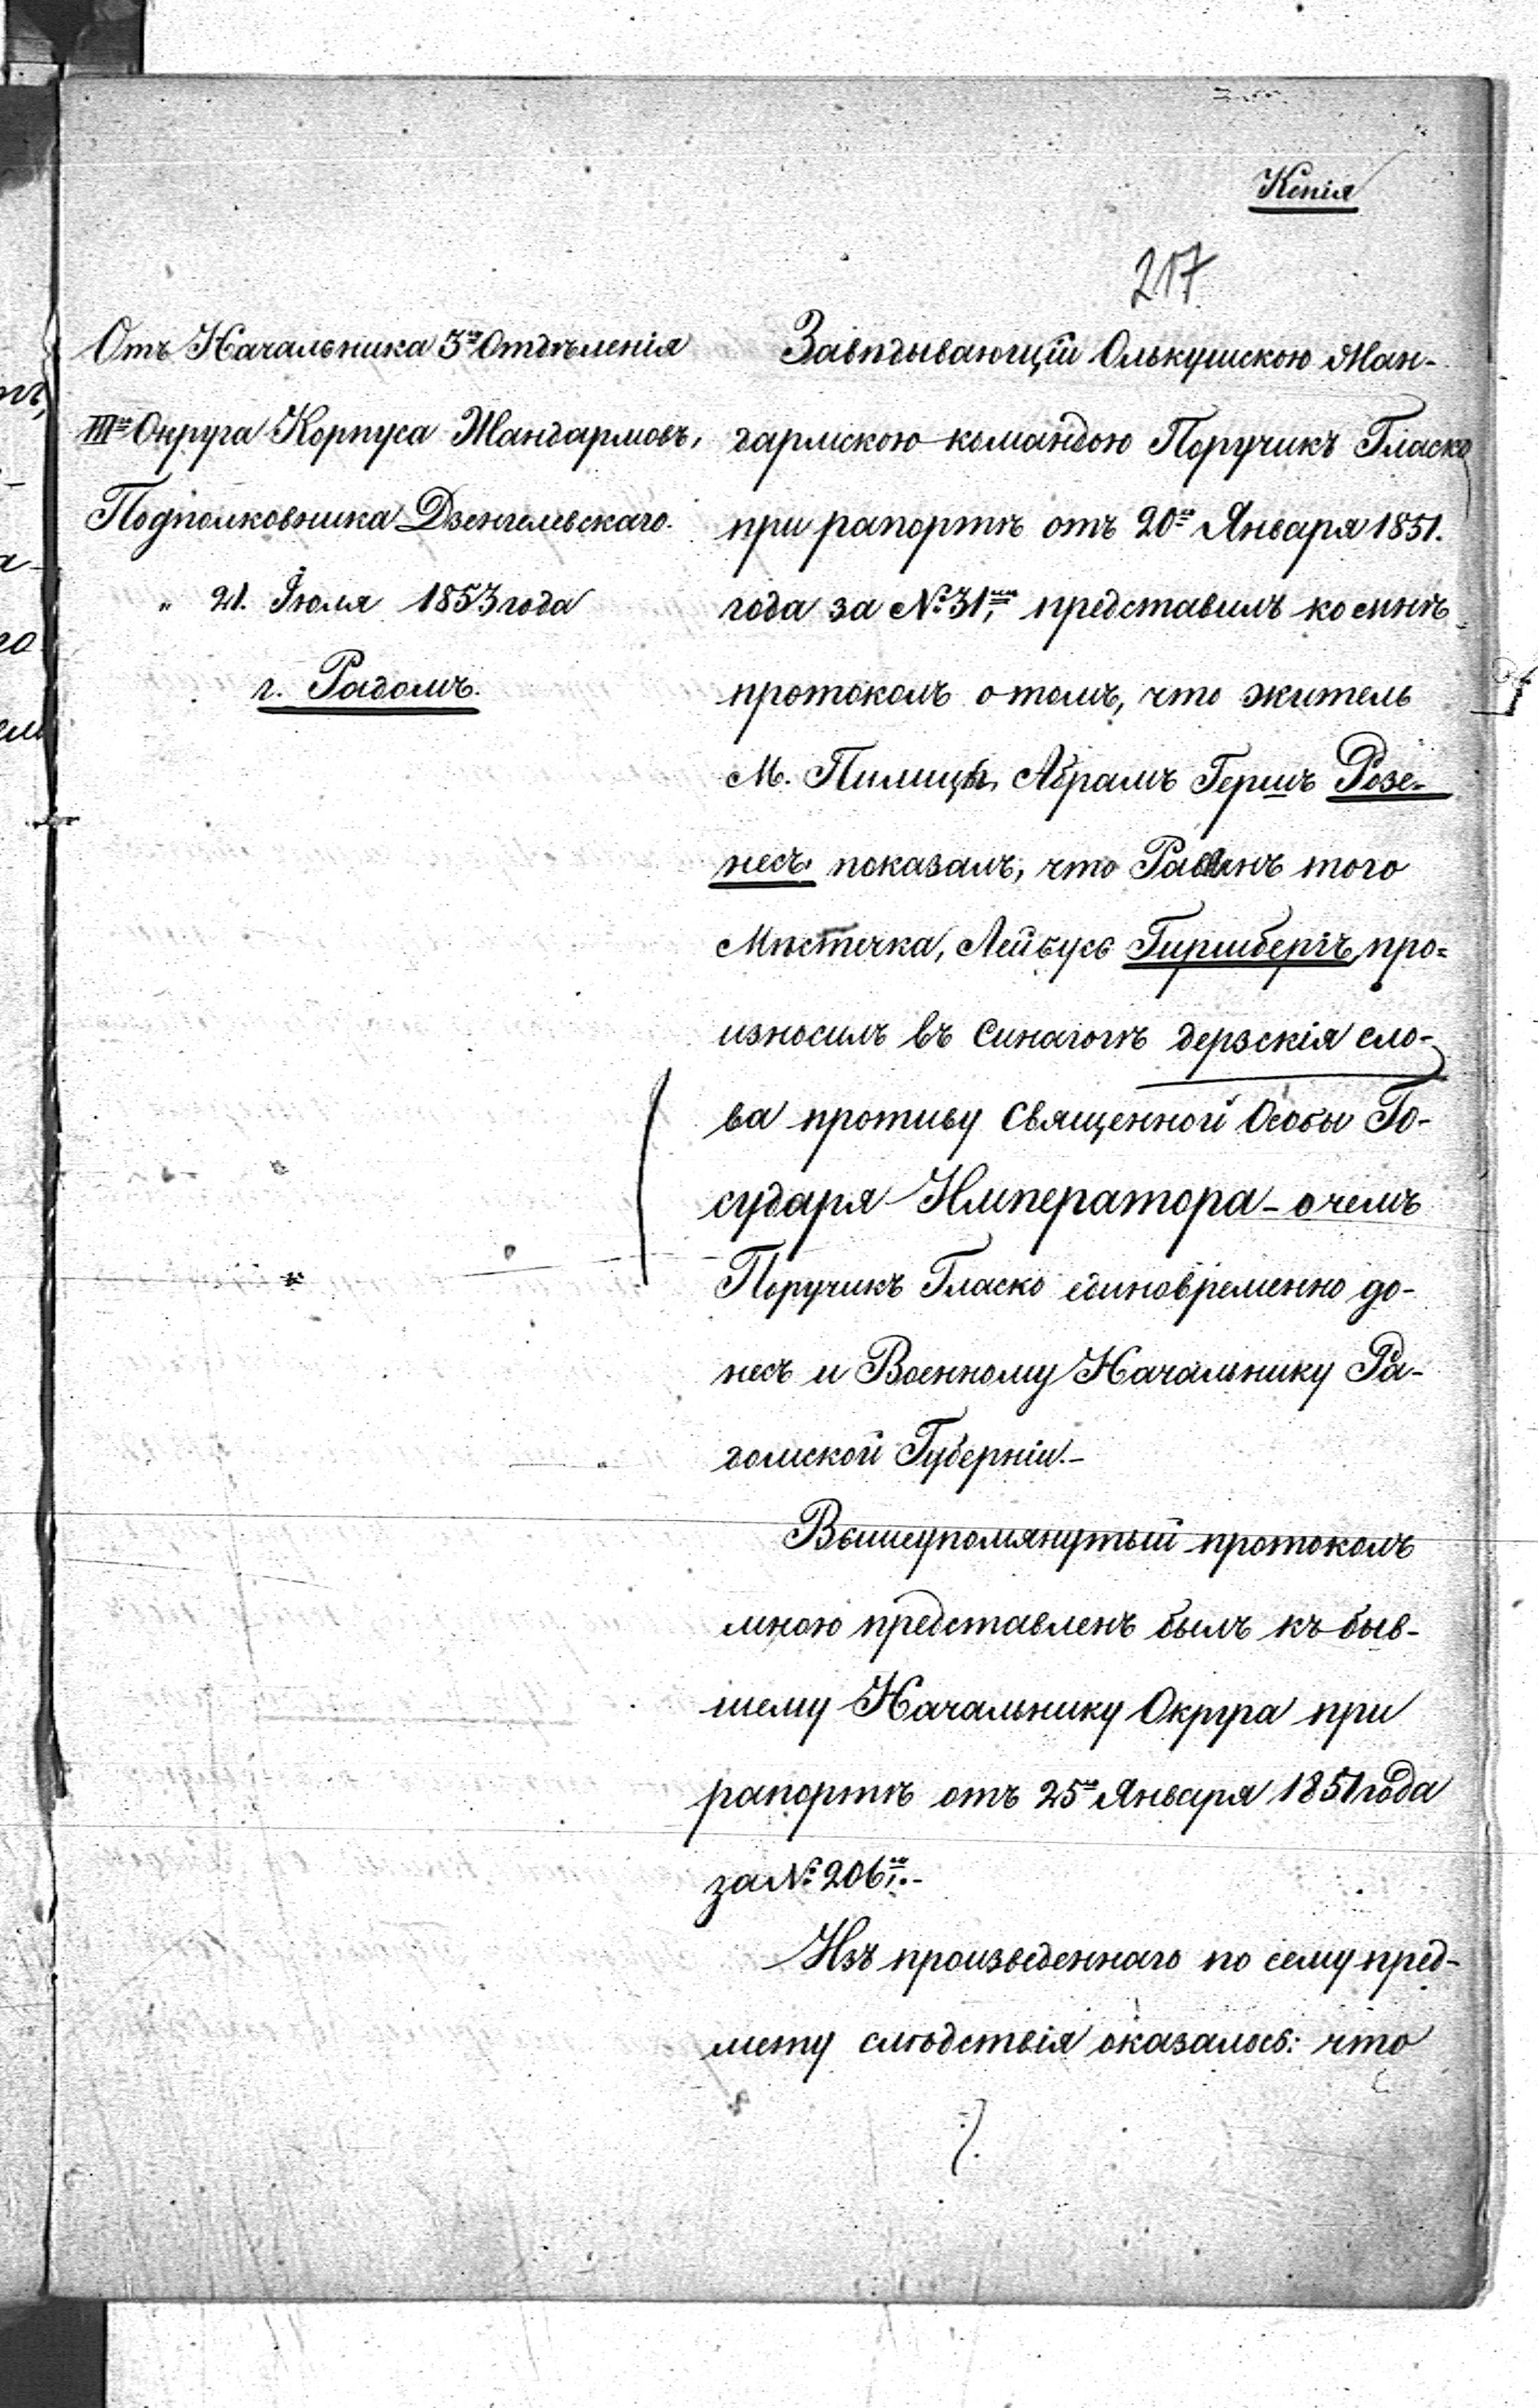 Копія
217
Отъ Начальника 3го Отдѣленія
IIIго Округа Корпуса Жандармовъ,
Подполковника Дзенгелевскаго.
„ 21. Іюля 1853 года
г. Радомъ.
Завѣдывающій Олькушскою Жан-
дармскою командою Поручикъ Гласко
при рапортѣ отъ 20го Января 1851.
года за №31мъ, представилъ ко мнѣ
протоколъ о томъ, что житель
М. Пилицы, Абрамъ Гершъ Розе-
несъ показалъ, что Равинъ того
Мѣстечка, Лейбусь Гиршбергъ, про=
износилъ въ Синагогѣ дерзскія сло-
ва противу Священной Особы Го-
сударя Императора - о чемъ
Поручикъ Гласко единовременно до-
несъ и Военному Начальнику Ра-
домской Губерніи.-
Вышеупомянутый протоколъ
мною представленъ былъ къ быв-
шему Начальнику Округа при
рапортѣ отъ 25го Января 1851 года
за №206мъ.-
Изъ произведеннаго по сему пред-
мету слѣдствія оказалось: что